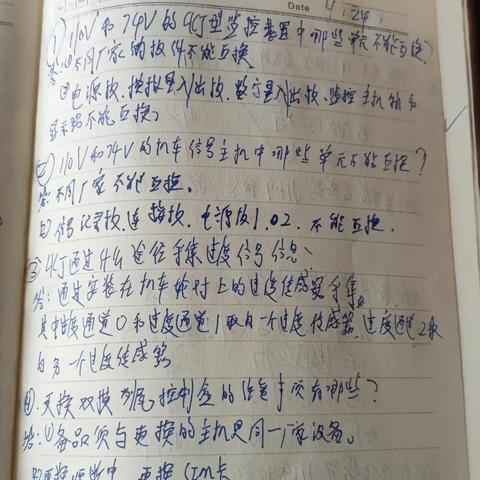 Date 4 24
①110V和74V的LKJ型监控装置中哪些单元不能互换?
答:①不同厂家的板件不能互换
②电源板、模拟量入/出板、数字量入/出板、监控主机
显示器不能互换。
②110V和74V的机车信号主机中哪些单元不能互换?
答:不同厂家不能互换。
② 信号记录板、连接板、电源板1.02.不能互换.
③LKJ通过什么途径采集速度信号信息、
答:通过安装在机车轮对上的速度传感器采集。
其中速度通道0和速度通道1取自一个速度传感器、速度通道2取
自另一个速度传感器
④.更换双模列尾控制盒的注意事项有哪些?
答:①备品须与更换的主机是同一厂家设备。
更换 SIM卡